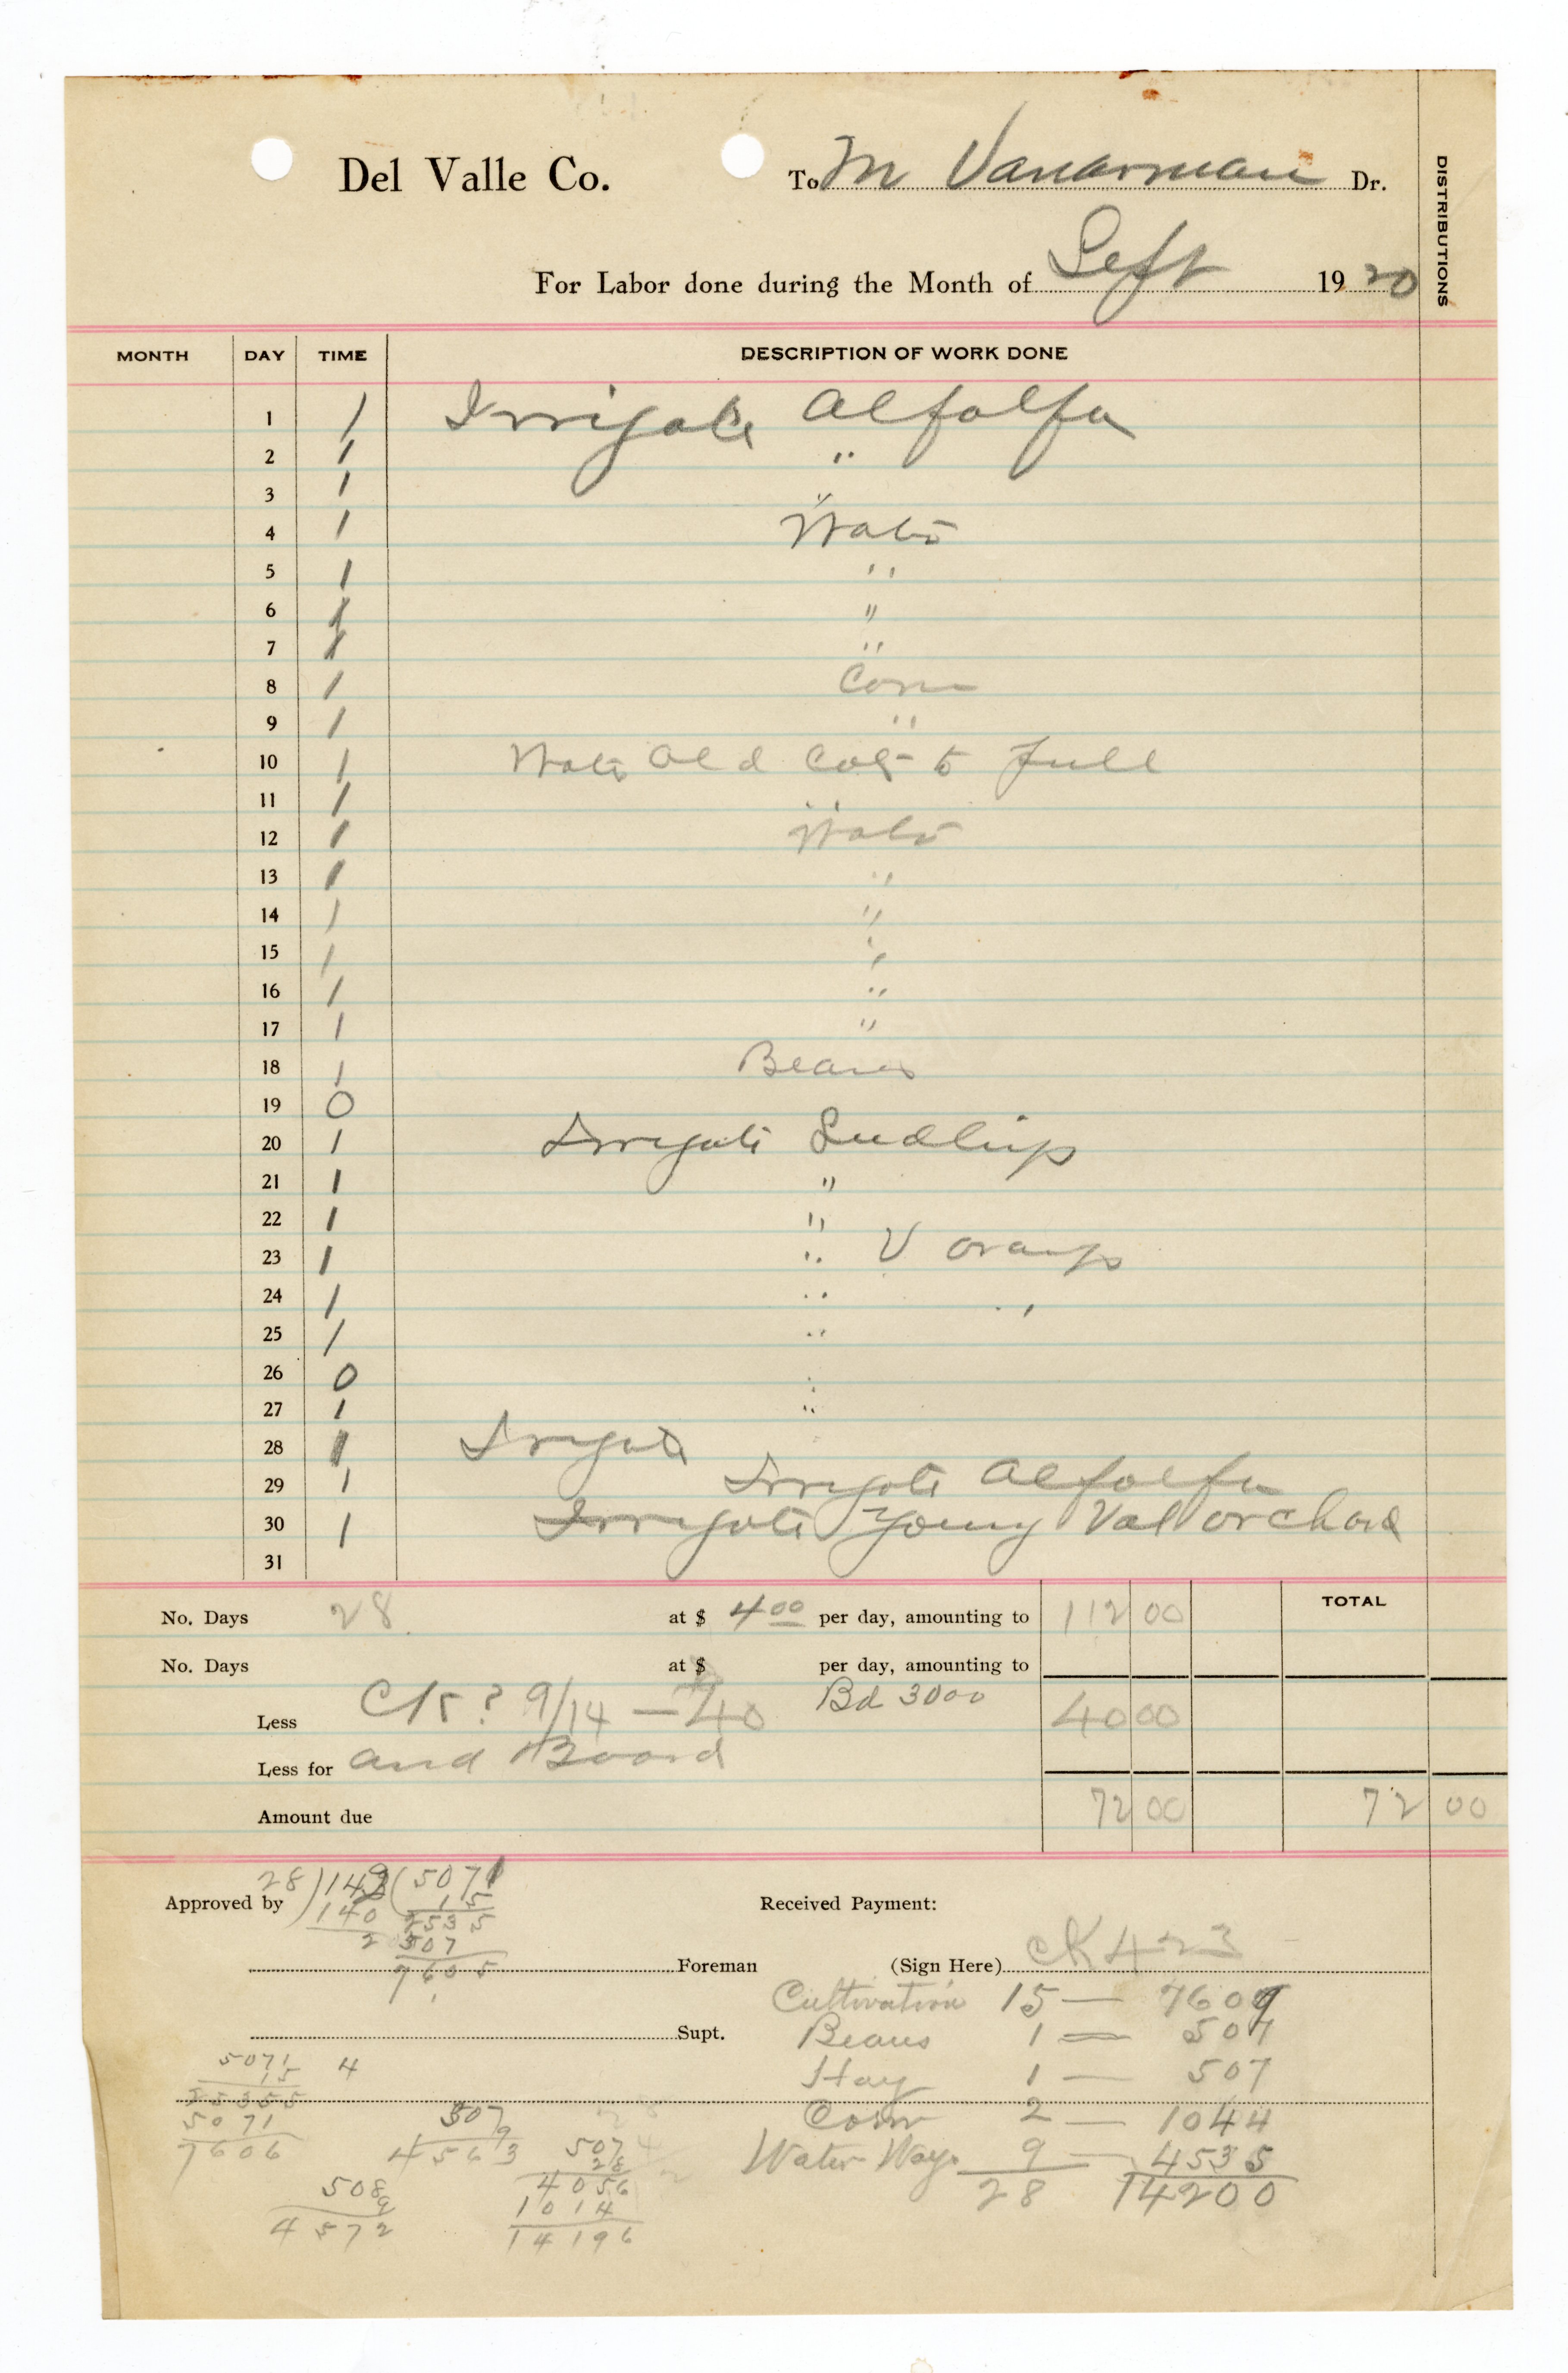 Del Valle Co. To M Vanarman Dr.
DISTRIBUTIONS
For Labor done during the Month of Sept 1920
MONTH DAY TIME DESCRIPTION OF WORK DONE
1 1 Irrigate Alfalfa
2 1 "
3 1 "
4 1 Water
5 1 "
6 1 "
7 1 "
8 1 Corn
9 1 "
10 1 Water Old to full
11 1 "
12 1 Water
13 1 "
14 1 "
15 1 "
16 1 "
17 1 "
18 1 Beans
19 0
20 1 Irrigate Sudlings
21 1 "
22 1 "
23 1 " V orangs
24 1 " "
25 1 "
26 0 "
27 1 "
28 1 Irrigate
29 1 Irrigate Alfalfa
30 1 Irrigate Young Val orchard
31
No. Days 28 at $ 4 00 per day, amounting to 112 00 TOTAL
No. Days at $ per day, amounting to
Less CK? 9/14 — 40 Bd 3000 40 00
Less for and Board
Amount due 72 00 72 00
28)142(5071
Approved by Received Payment:
140 15
2 2535
507
7605
Foreman (Sign Here) CK 423
Cultivation 15 — 7609
Supt. Beans 1 — 507
5071 4
15
25355
5071
7606
Hay 1 — 507
Corn 2 — 1044
Water Ways 9 — 4535
28 14200
507
9
4563
507
28
4056
1014
14196
508
9
4572